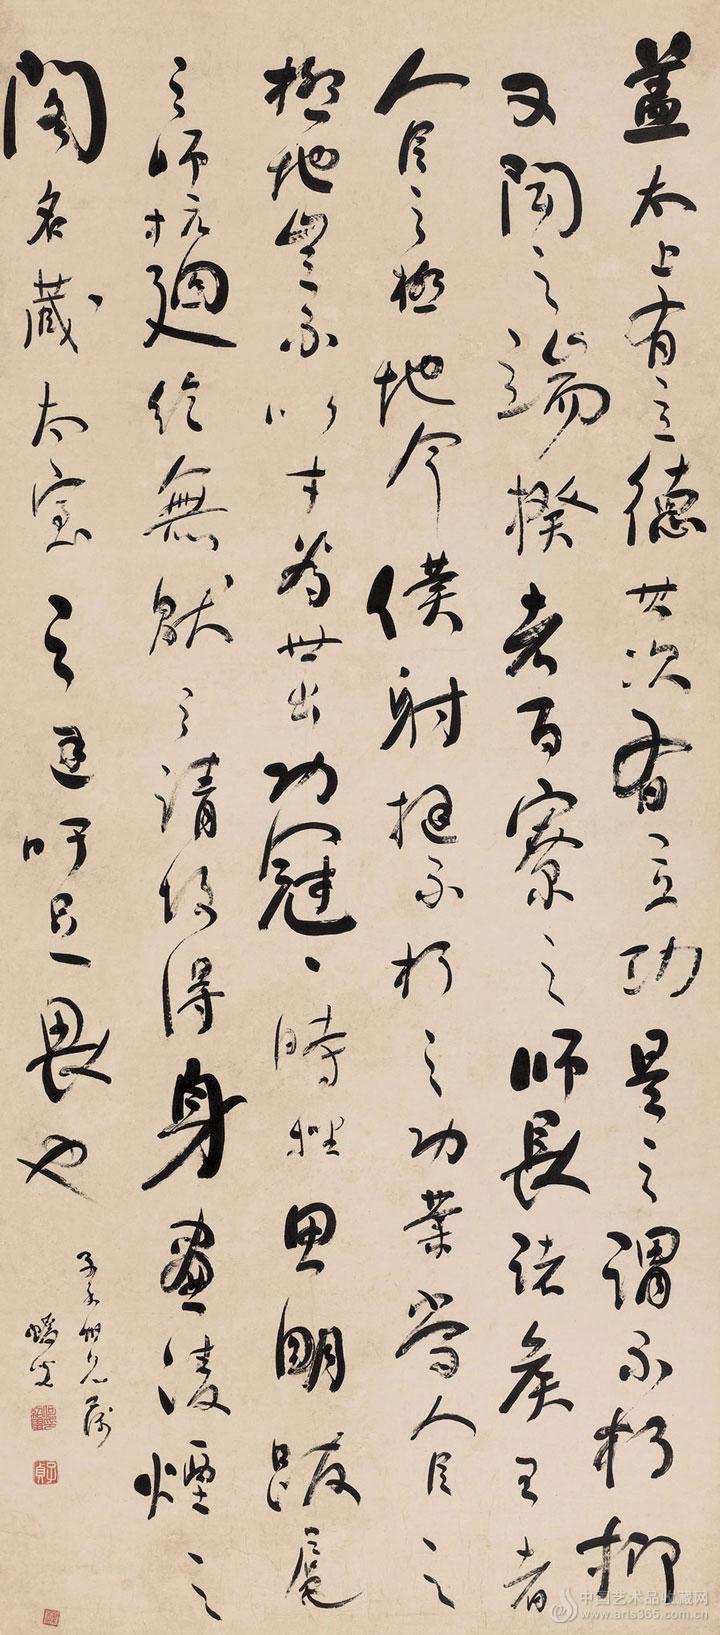 盖太上有立德其次有立功是之谓不朽抑
又闻之端揆者百寮之师长诸侯王者
人臣之极地今僕射挺不朽之功业当人臣之
极地岂不以才为世出功冠一时挫思明跋扈
之师抗迴纥無厭之请故得身画凌煙之
阁名藏太室之廷吁足畏也
蟠叟
子貞
中国艺术品收藏网
www.arts365.com.cn